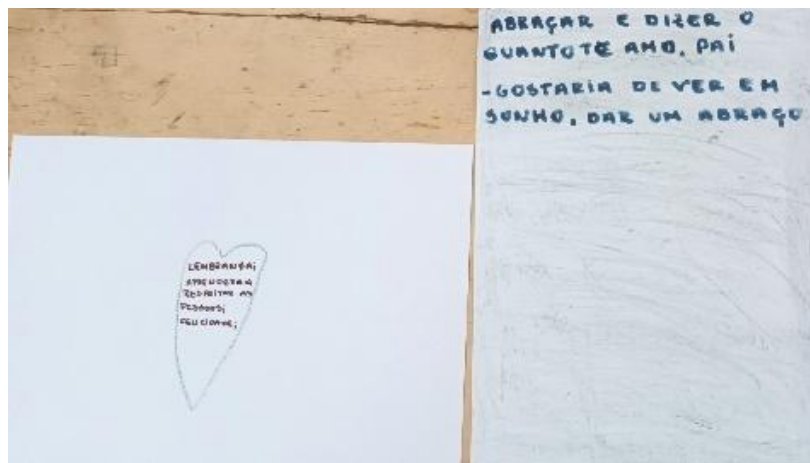 LEMBRANÇA;
APRENDER A
RESPEITAR AS
PESSOAS;
FELICIDADE;
ABRAÇAR E DIZER O
QUANTO TE AMO, PAI
-GOSTARIA DE VER EM
SONHO, DAR UM ABRAÇO